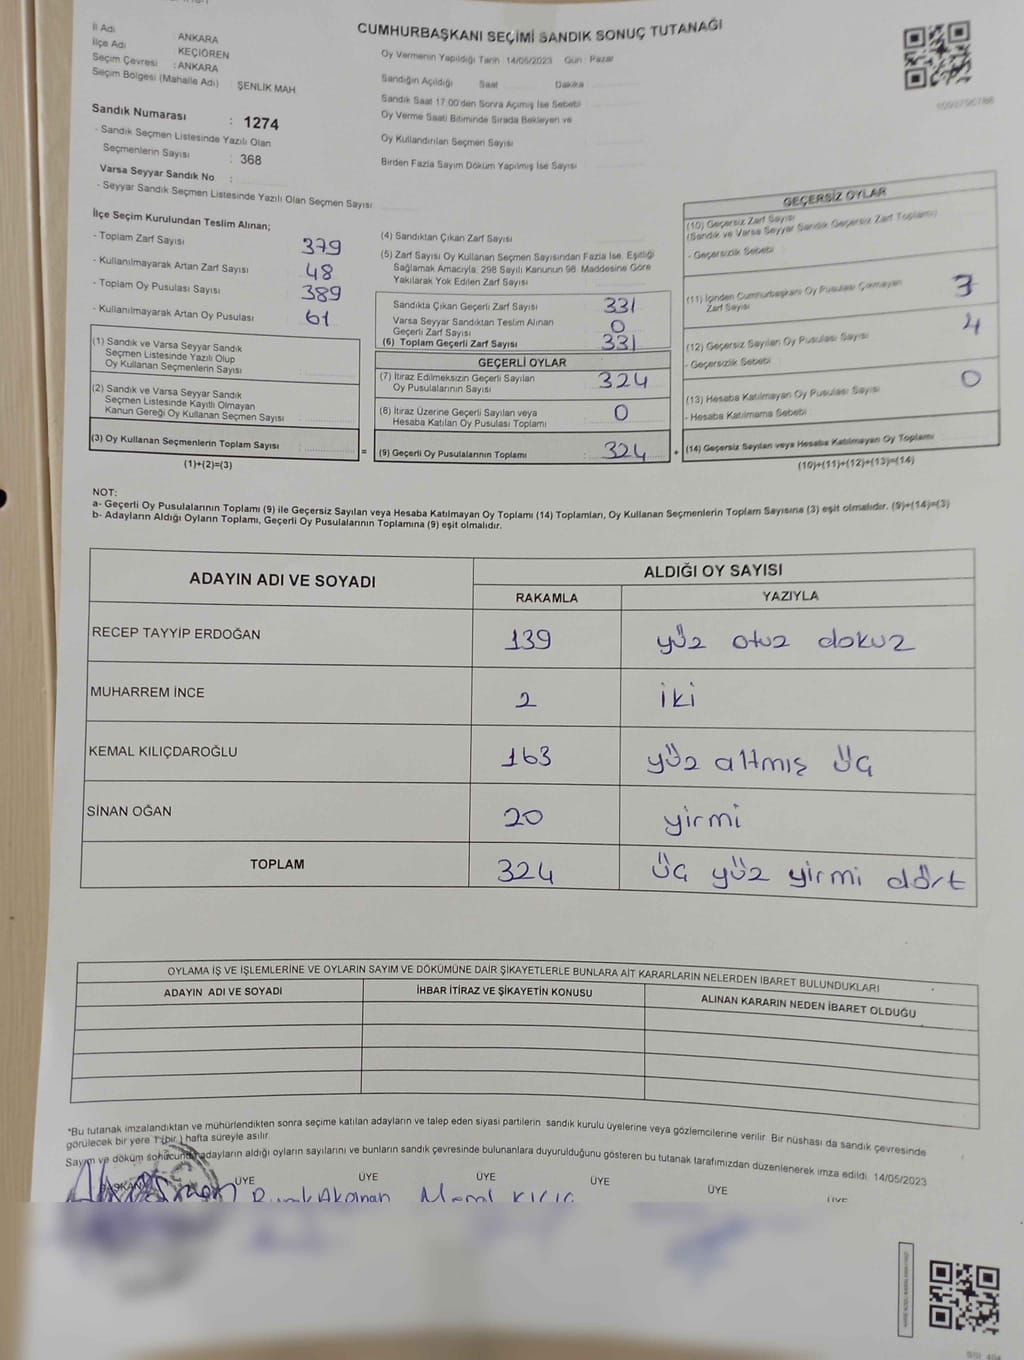 CUMHURBAŞKANI SEÇİMİ SANDIK SONUÇ TUTANAĞI
İl Adı : ANKARA
İlçe Adı : KEÇİÖREN
Seçim Çevresi : ANKARA
Seçim Bölgesi (Mahalle Adı) : ŞENLİK MAH
Sandık Numarası : 1274
- Sandık Seçmen Listesinde Yazılı Olan
Seçmenlerin Sayısı : 368
Varsa Seyyar Sandık No :
- Seyyar Sandık Seçmen Listesinde Yazılı Olan Seçmen Sayısı
Oy Vermenin Yapıldığı Tarih : 14/05/2023 Gün : Pazar
Sandığın Açıldığı Saat Dakika
Sandık Saat 17:00'den Sonra Açımış İse Sebebi
Oy Verme Saati Bitiminde Sırada Bekleyen ve
Oy Kullandırılan Seçmen Sayısı
Birden Fazla Sayım Döküm Yapılmış İse Sayısı
İlçe Seçim Kurulundan Teslim Alınan;
- Toplam Zarf Sayısı 379
- Kullanılmayarak Artan Zarf Sayısı 48
- Toplam Oy Pusulası Sayısı 389
- Kullanılmayarak Artan Oy Pusulası 61
(1) Sandık ve Varsa Seyyar Sandık
Seçmen Listesinde Yazılı Olup
Oy Kullanan Seçmenlerin Sayısı
(2) Sandık ve Varsa Seyyar Sandık
Seçmen Listesinde Kayıtlı Olmayan
Kanun Gereği Oy Kullanan Seçmen Sayısı
(3) Oy Kullanan Seçmenlerin Toplam Sayısı =
(1)+(2)=(3)
(4) Sandıktan Çıkan Zarf Sayısı
(5) Zarf Sayısı Oy Kullanan Seçmen Sayısından Fazla İse, Eşitliği
Sağlamak Amacıyla, 298 Sayılı Kanunun 98. Maddesine Göre
Yakılarak Yok Edilen Zarf Sayısı
Sandıkta Çıkan Geçerli Zarf Sayısı 331
Varsa Seyyar Sandıktan Teslim Alınan
Geçerli Zarf Sayısı 0
(6) Toplam Geçerli Zarf Sayısı 331
GEÇERLİ OYLAR
(7) İtiraz Edilmeksizin Geçerli Sayılan
Oy Pusulalarının Sayısı 324
(8) İtiraz Üzerine Geçerli Sayılan veya
Hesaba Katılan Oy Pusulası Toplamı 0
(9) Geçerli Oy Pusulalarının Toplamı : 324 +
GEÇERSİZ OYLAR
(10) Geçersiz Zarf Sayısı
(Sandık ve Varsa Seyyar Sandık Geçersiz Zarf Toplamı)
- Geçersizlik Sebebi
(11) İçinden Cumhurbaşkanı Oy Pusulası Çıkmayan
Zarf Sayısı 3
(12) Geçersiz Sayılan Oy Pusulası Sayısı 4
- Geçersizlik Sebebi
(13) Hesaba Katılmayan Oy Pusulası Sayısı 0
- Hesaba Katılmama Sebebi
(14) Geçersiz Sayılan veya Hesaba Katılmayan Oy Toplamı
(10)+(11)+(12)+(13)=(14)
NOT:
a- Geçerli Oy Pusulalarının Toplamı (9) ile Geçersiz Sayılan veya Hesaba Katılmayan Oy Toplamı (14) Toplamları, Oy Kullanan Seçmenlerin Toplam Sayısına (3) eşit olmalıdır. (9)+(14)=(3)
b- Adayların Aldığı Oyların Toplamı, Geçerli Oy Pusulalarının Toplamına (9) eşit olmalıdır.
ADAYIN ADI VE SOYADI ALDIĞI OY SAYISI
RAKAMLA YAZIYLA
RECEP TAYYİP ERDOĞAN 139 yüz otuz dokuz
MUHARREM İNCE 2 iki
KEMAL KILIÇDAROĞLU 163 yüz altmış üç
SİNAN OĞAN 20 yirmi
TOPLAM 324 üç yüz yirmi dört
OYLAMA İŞ VE İŞLEMLERİNE VE OYLARIN SAYIM VE DÖKÜMÜNE DAİR ŞİKAYETLERLE BUNLARA AİT KARARLARIN NELERDEN İBARET BULUNDUKLARI
ADAYIN ADI VE SOYADI İHBAR İTİRAZ VE ŞİKAYETİN KONUSU ALINAN KARARIN NEDEN İBARET OLDUĞU
*Bu tutanak imzalandıktan ve mühürlendikten sonra seçime katılan adayların ve talep eden siyasi partilerin sandık kurulu üyelerine veya gözlemcilerine verilir. Bir nüshası da sandık çevresinde
görülecek bir yere 1 (bir) hafta süreyle asılır.
Sayım ve döküm sonucunda adayların aldığı oyların sayılarını ve bunların sandık çevresinde bulunanlara duyurulduğunu gösteren bu tutanak tarafımızdan düzenlenerek imza edildi. 14/05/2023
BAŞKAN ÜYE ÜYE ÜYE ÜYE ÜYE ÜYE